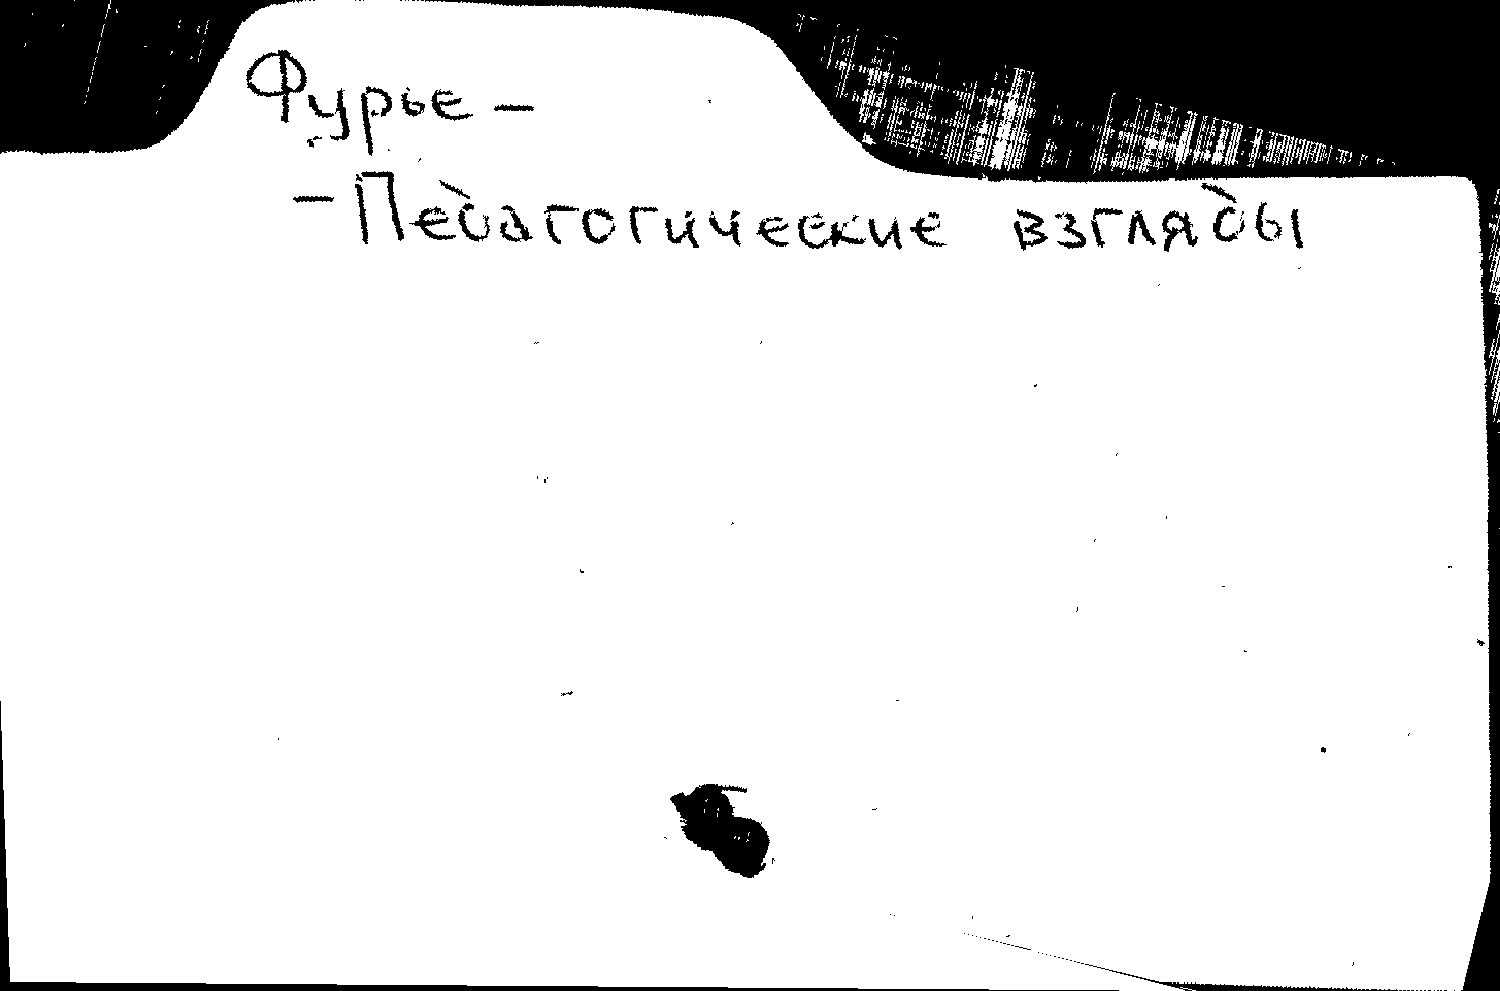 Фурье –
– Педагогические взгляды